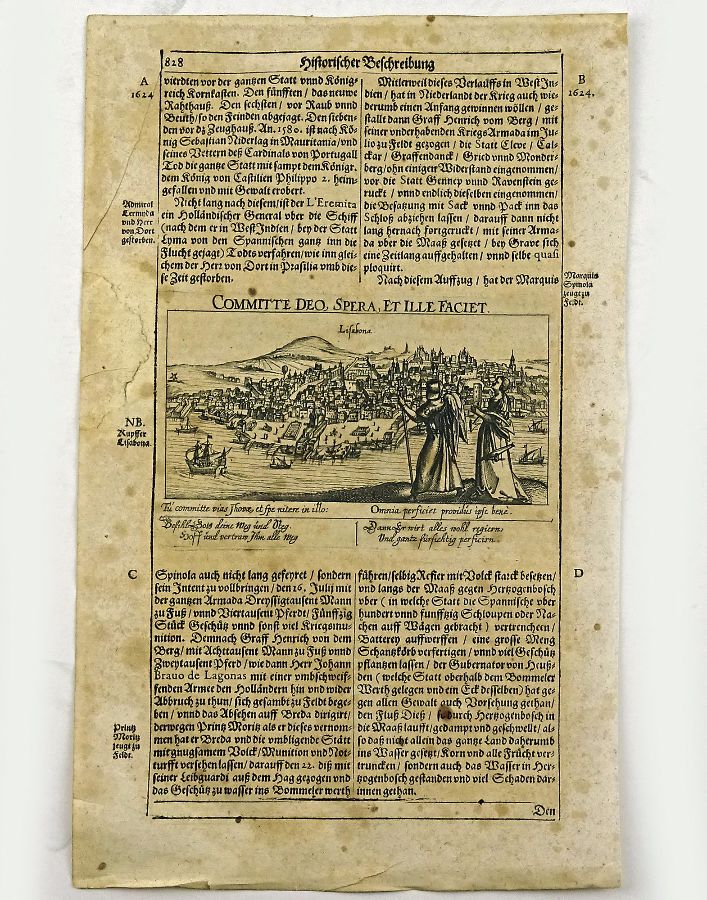 828
Historischer Beschreibung
A
1624
vierdten vor der gantzen Statt vnnd Königs
reich Kornkasten. Den fünfften / das neuwe
Rahthauß. Den sechsten / vor Raub vnnd
Beuth / so den Feinden abgejagt. Den sieben-
den vor dz Zeughauß. An. 1580. ist nach Kö-
nig Sebastian Niderlag in Mauritania / vnd
seines Vettern deß Cardinals von Portugall
Tod die gantze Statt mit sampt dem Königr.
dem König von Castilien Philippo 2. heim-
gefallen vnd mit Gewalt erobert.
Admiral
Leremyda
vnd Herr
von Dort
gestorben.
Nicht lang nach diesem / ist der L'Eremita
ein Holländischer General vber die Schiff
(nach dem er in West Indien / bey der Statt
Lyma von den Spannischen gantz inn die
Flucht gejagt) Todts verfahren / wie inn glei-
chem der Herr von Dort in Prasilia vmb die-
se Zeit gestorben.
B
1624.
Mitlerweil dieses Verlauffs in West In-
dien / hat in Niederlandt der Krieg auch wie-
derumb einen Anfang gewinnen wöllen / ge-
stallt dann Graff Henrich vom Berg / mit
seiner vnderhabenden Kriegs Armada im Ju-
lio zu Feldt gezogen / die Statt Cleve / Cal-
ckar / Graffendanck / Gried vnnd Monder-
berg / ohn einiger Widerstand eingenommen /
vor die Statt Gennep vnnd Ravenstein ge-
ruckt / vnnd endlich dieselben eingenommen /
die Besatzung mit Sack vnnd Pack inn das
Schloß abziehen lassen / darauff dann nicht
lang hernach fortgeruckt / mit seiner Arma-
da vber die Maaß gesetzt / bey Grave sich
eine Zeitlang auffgehalten / vnnd selbe quasi
ploquirt.
Nach diesem Auffzug / hat der Marquis
Marquis
Spinola
zeugt zu
Feldt.
COMMITTE DEO, SPERA, ET ILLE FACIET.
Lisabona.
NB.
Kupffer
Lisabona.
Tu committe vias Ihovæ, et spe nitere in illo:
Omnia perficiet providus ipse benè.
Befihl Gott deine Weg und Steg.
Hoff und vertrau Ihm alle Weg
Dann Er wirt alles wohl regiern.
Und gantz fürsichtig perficirn.
C
Spinola auch nicht lang gefeyret / sondern
sein Intent zu vollbringen / den 26. Julij mit
der gantzen Armada Dreyssigtausent Mann
zu Fuß / vnnd Viertausent Pferdt / Fünffzig
Stück Geschütz vnnd sonst viel Kriegsmu-
nition. Demnach Graff Henrich von dem
Berg / mit Achttausent Mann zu Fuß vnnd
Zweytausent Pferd / wie dann Herr Johann
Brauo de Lagonas mit einer vmbschweif-
fenden Armee den Holländern hin vnd wider
Abbruch zu thun / sich gesambt zu Feldt bege-
ben / vnnd das Absehen auff Breda dirigirt /
derwegen Prinz Moritz als er dieses vernom-
men hat er Breda vnd die vmbligende Stätt
mit gnugsamem Volck / Munition vnd Not-
turfft versehen lassen / darauff den 22. diß mit
seiner Leibguardi auß dem Hag gezogen vnd
das Geschütz zu wasser ins Bommeler werth
Printz
Moritz
zeugt zu
Feldt.
D
führen / selbig Refier mit Volck starck besetzen /
vnd langs der Maaß gegen Hertzogenbosch
vber (in welche Statt die Spannische vber
hundert vnnd funfftzig Schloupen oder Na-
chen auff Wägen gebracht) vertrencheen /
Batterey auffwerffen / eine grosse Meng
Schantzkörb verfertigen / vnnd viel Geschütz
pflantzen lassen / der Gubernator von Heuß-
den (welche Statt oberhalb dem Bommeler
Werth gelegen vnd ein Eck desselben) hat ge-
gen allen Gewalt auch Vorsehung gethan /
den Fluß Dieß / so durch Hertzogenbosch in
die Maaß laufft / gedampt vnd geschwelt / al-
so daß nicht allein das gantze Land daherumb
ins Wasser gesetzt / Korn vnd alle Frücht ver-
truncken / sondern auch das Wasser in Her-
tzogenbosch gestanden vnd viel Schaden dar-
innen gethan.
Den